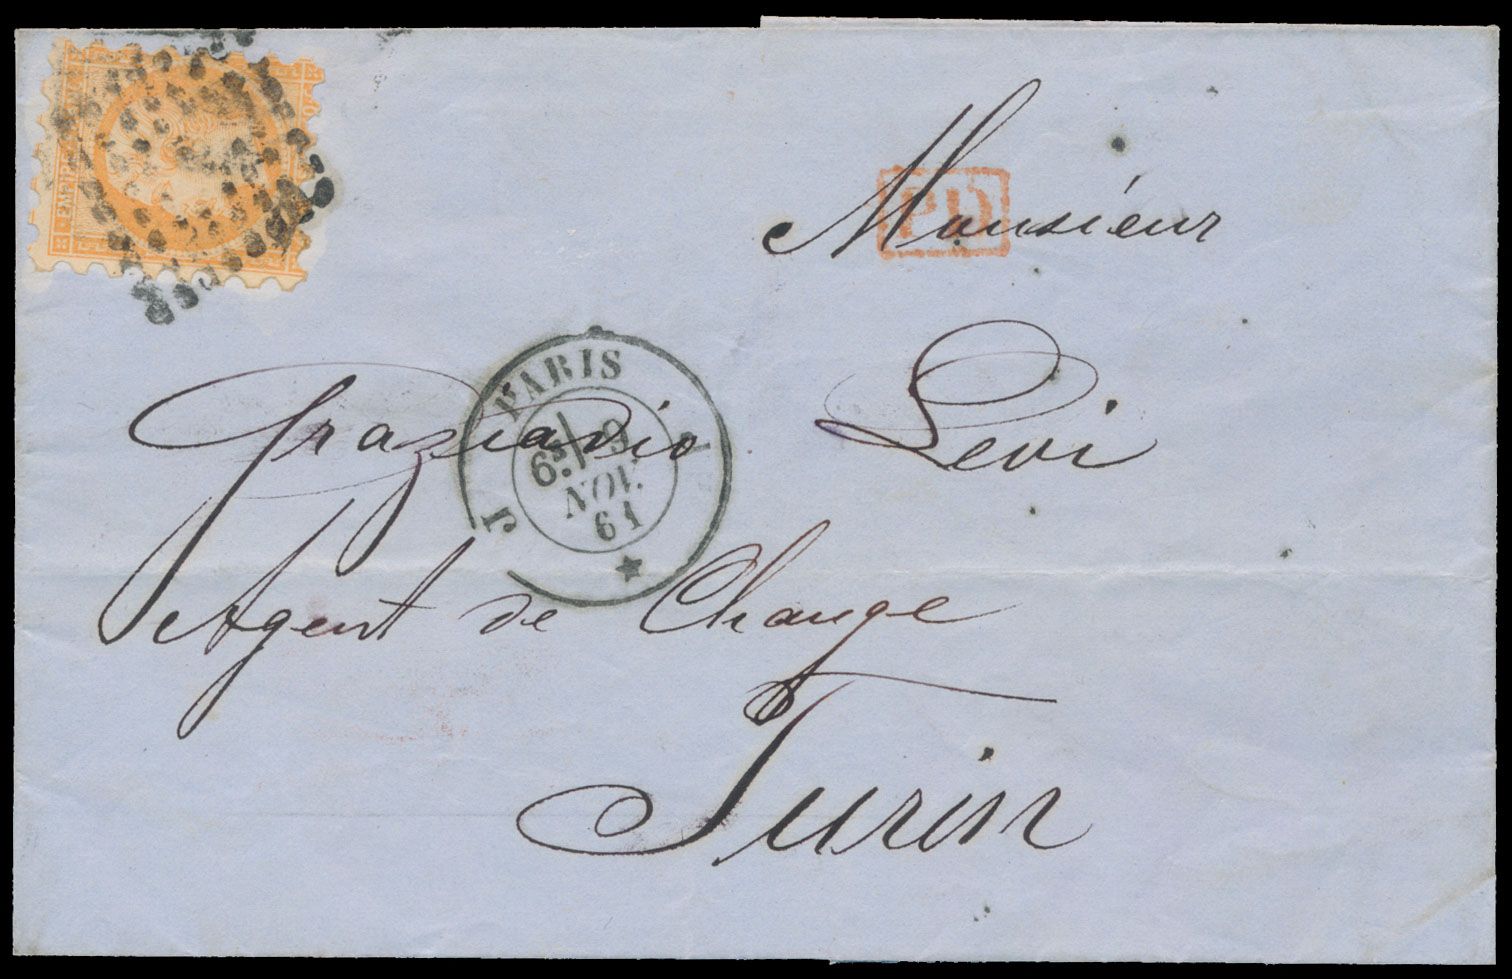 EMPIRE
PD
Monsieur
Graziadio Levi
Agent de Change
Turin
PARIS
J
6S 9
NOV.
61